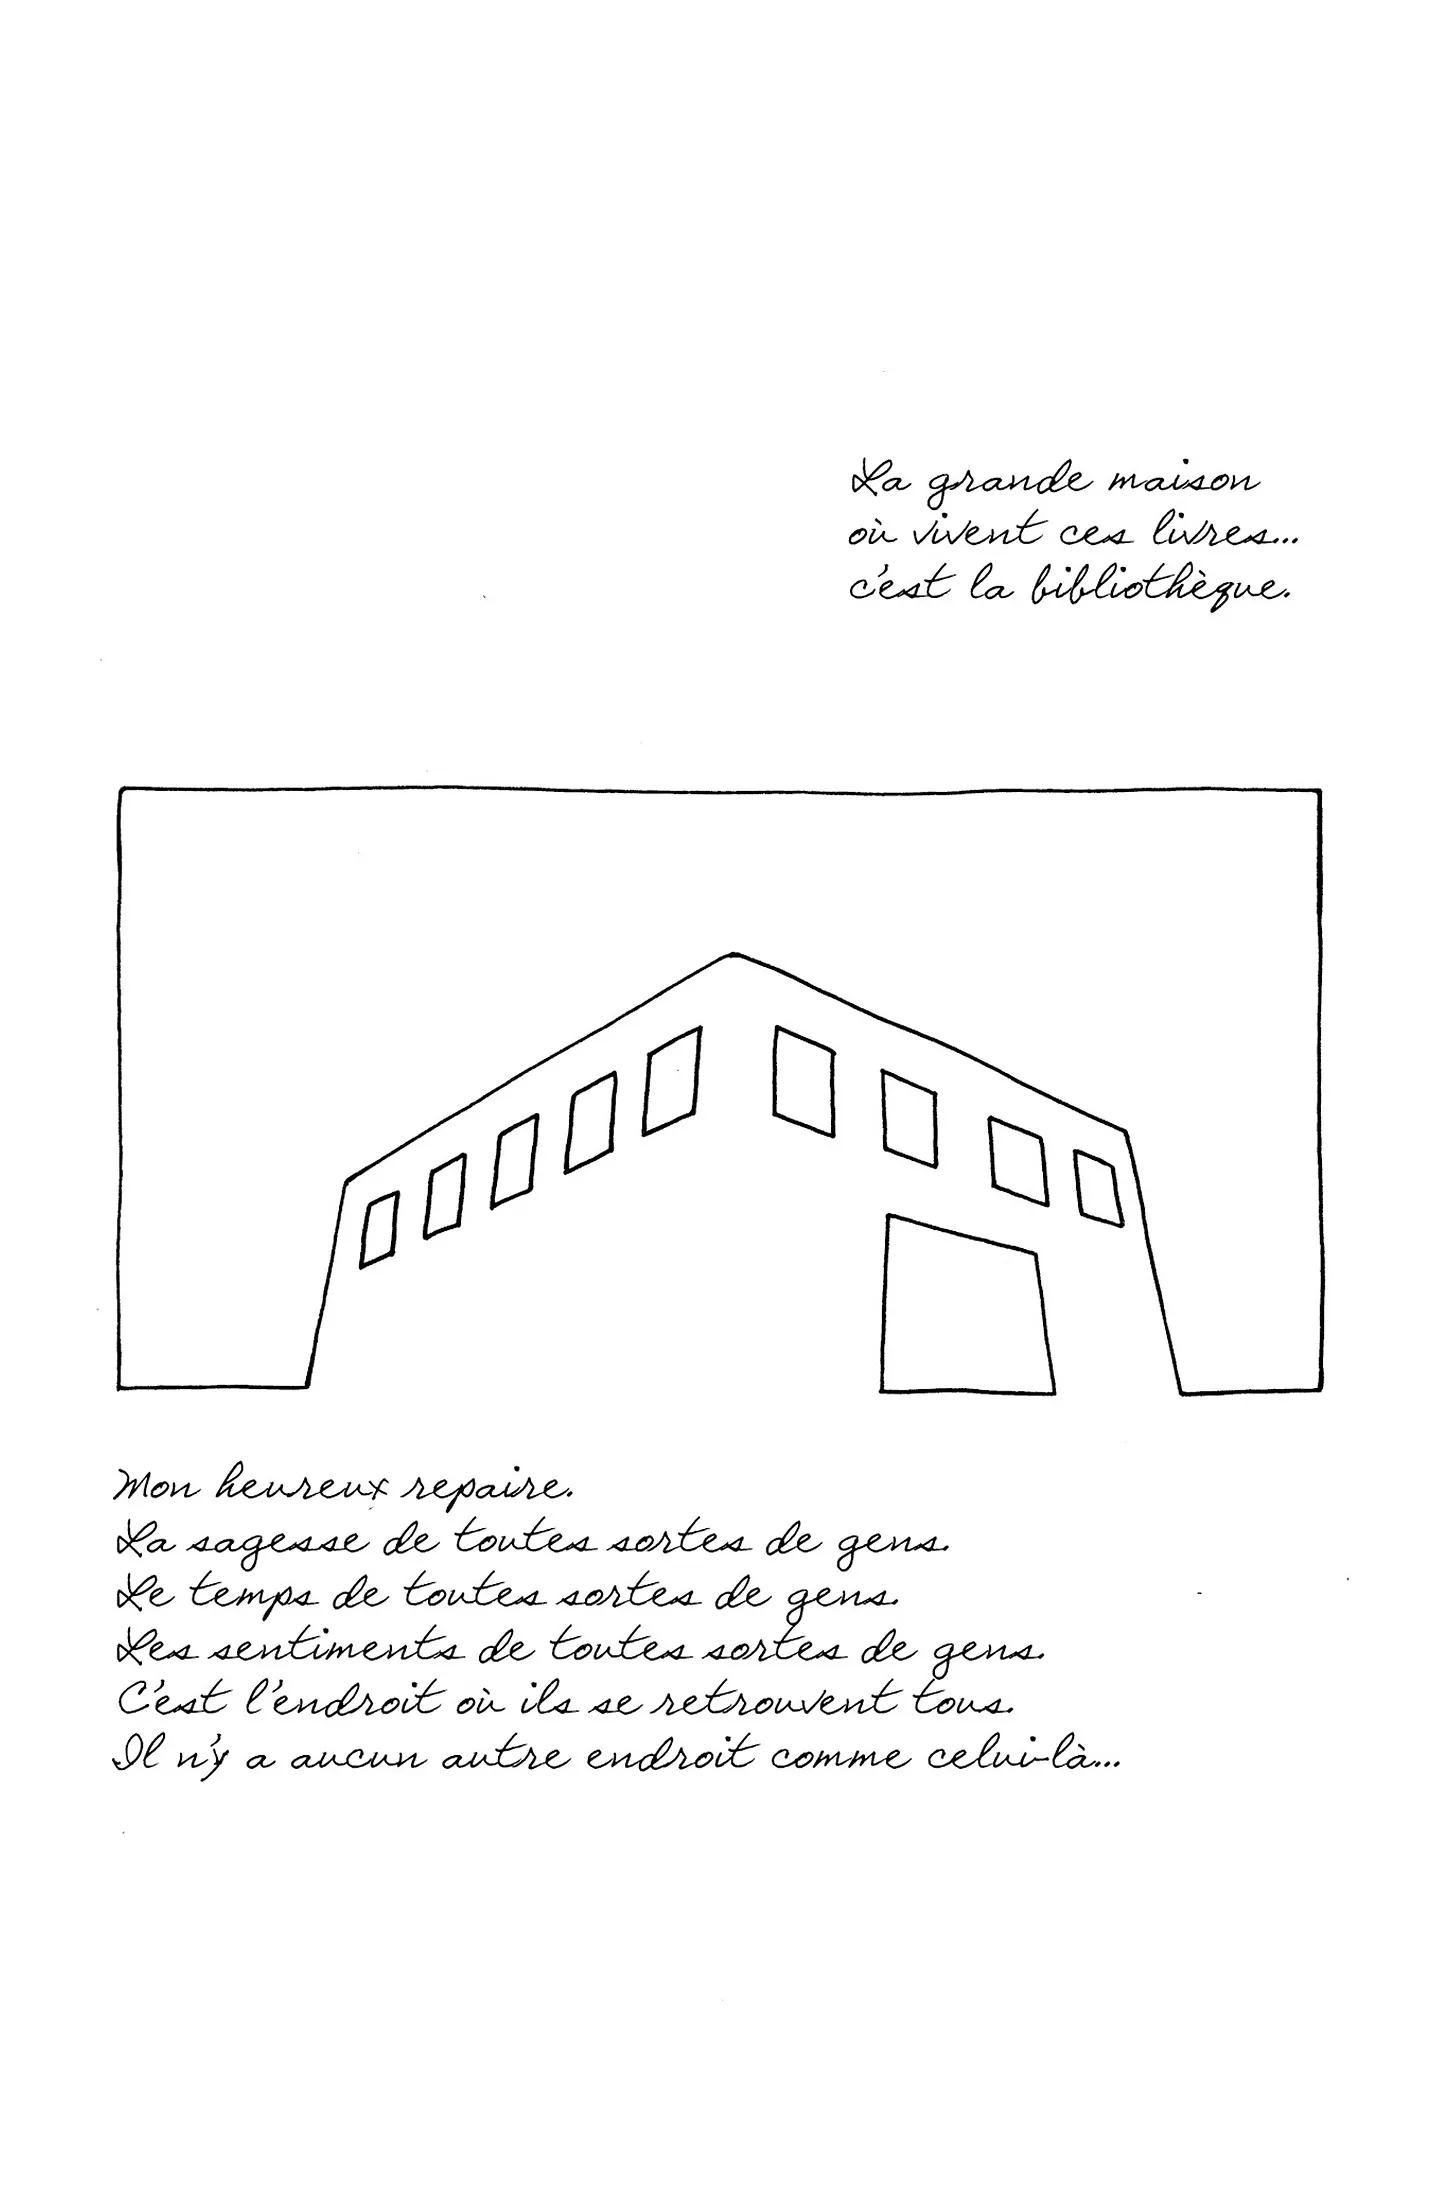 La grande maison
où vivent ces livres...
c'est la bibliothèque.
Mon heureux repaire.
La sagesse de toutes sortes de gens.
Le temps de toutes sortes de gens.
Les sentiments de toutes sortes de gens.
C'est l'endroit où ils se retrouvent tous.
Il n'y a aucun autre endroit comme celui-là...